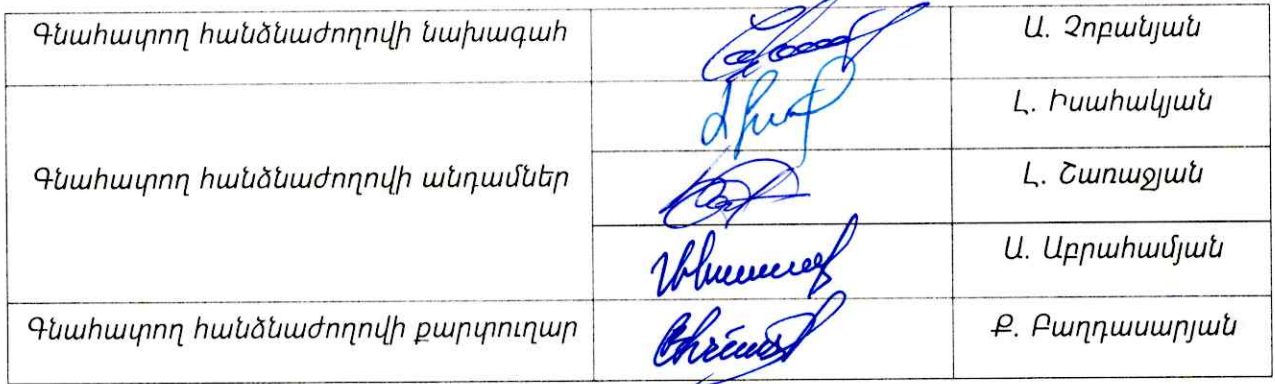 Գնահատող հանձնաժողովի նախագահ
Ա. Չոբանյան
Լ. Իսահակյան
Գնահատող հանձնաժողովի անդամներ
Լ. Շառաջյան
Ա. Աբրահամյան
Գնահատող հանձնաժողովի քարտուղար
Ք. Բաղդասարյան